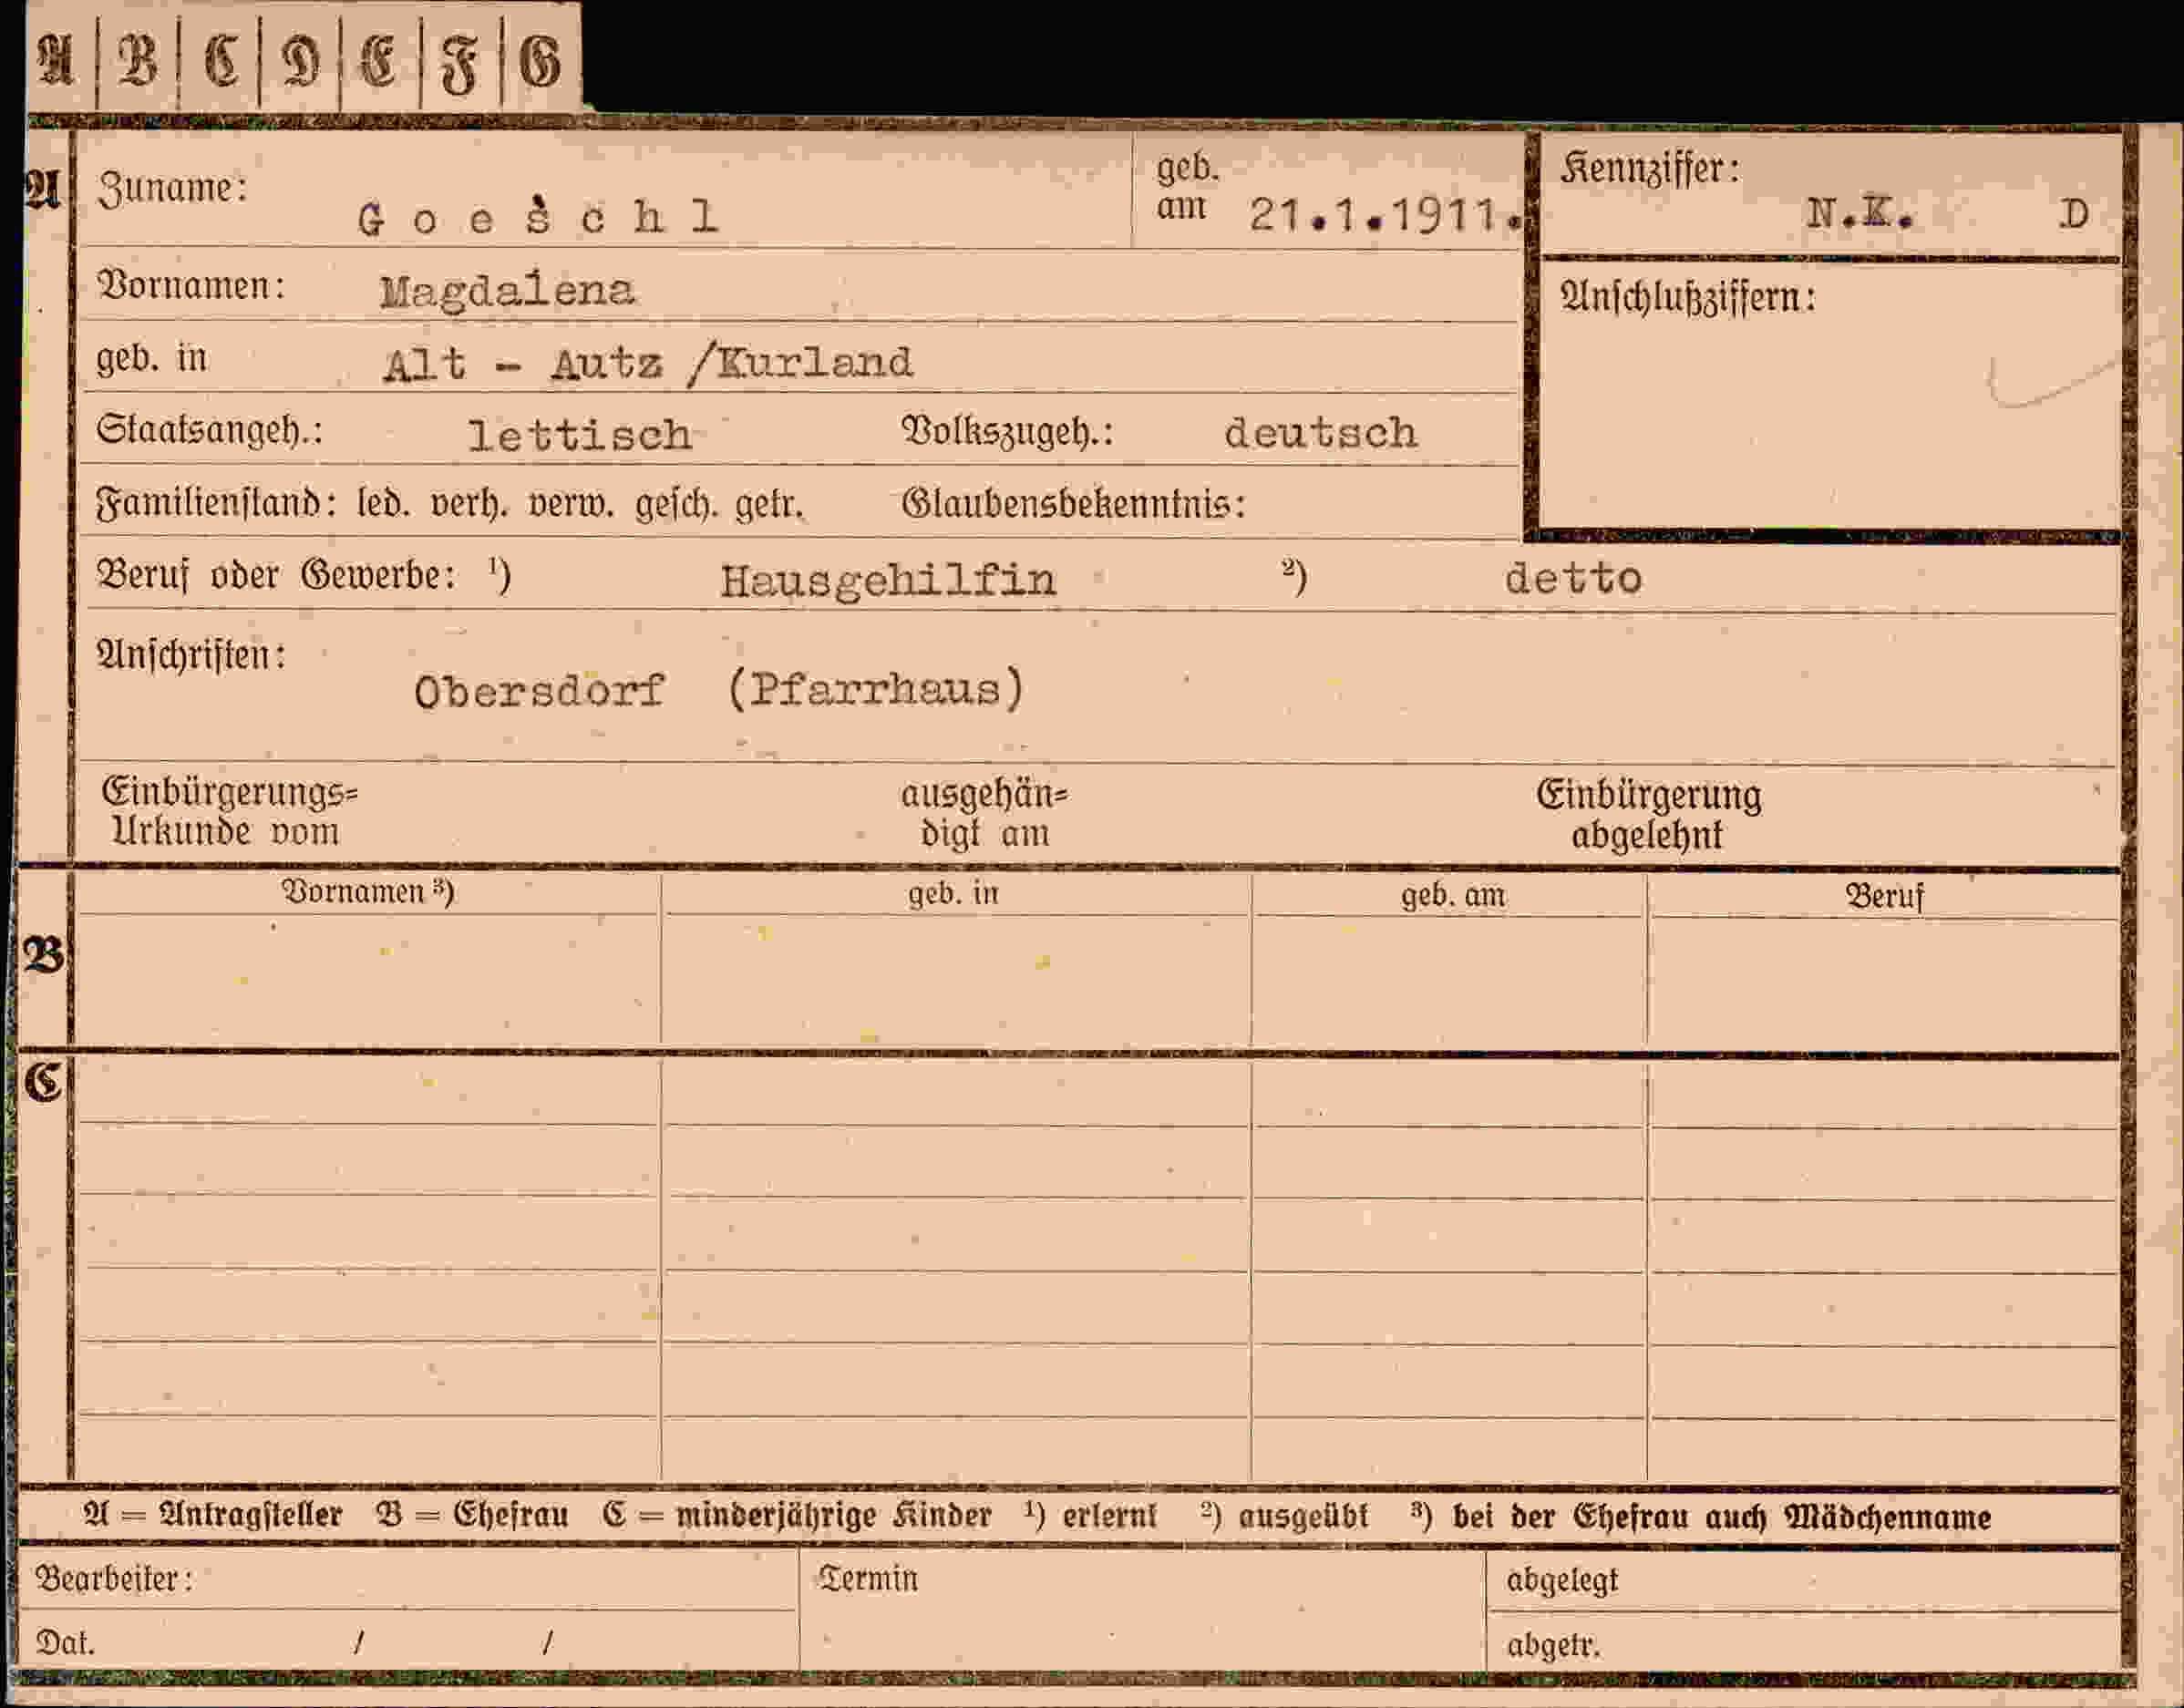 A B C D E F G
A Zuname: Goeschl geb. am 21.1.1911. Kennziffer: N.K. D
Vornamen: Magdalena
Anschlußziffern:
geb. in Alt - Autz /Kurland
Staatsangeh.: lettisch Volkszugeh.: deutsch
Familienstand: led. verh. verw. gesch. getr. Glaubensbekenntnis:
Beruf oder Gewerbe: ¹) Hausgehilfin ²) detto
Anschriften:
Obersdorf (Pfarrhaus)
Einbürgerungs= ausgehän= Einbürgerung
Urkunde vom digt am abgelehnt
Vornamen ³) geb. in geb. am Beruf
B
C
A = Antragsteller B = Ehefrau C = minderjährige Kinder ¹) erlernt ²) ausgeübt ³) bei der Ehefrau auch Mädchenname
Bearbeiter: Termin abgelegt
Dat. / / abgetr.